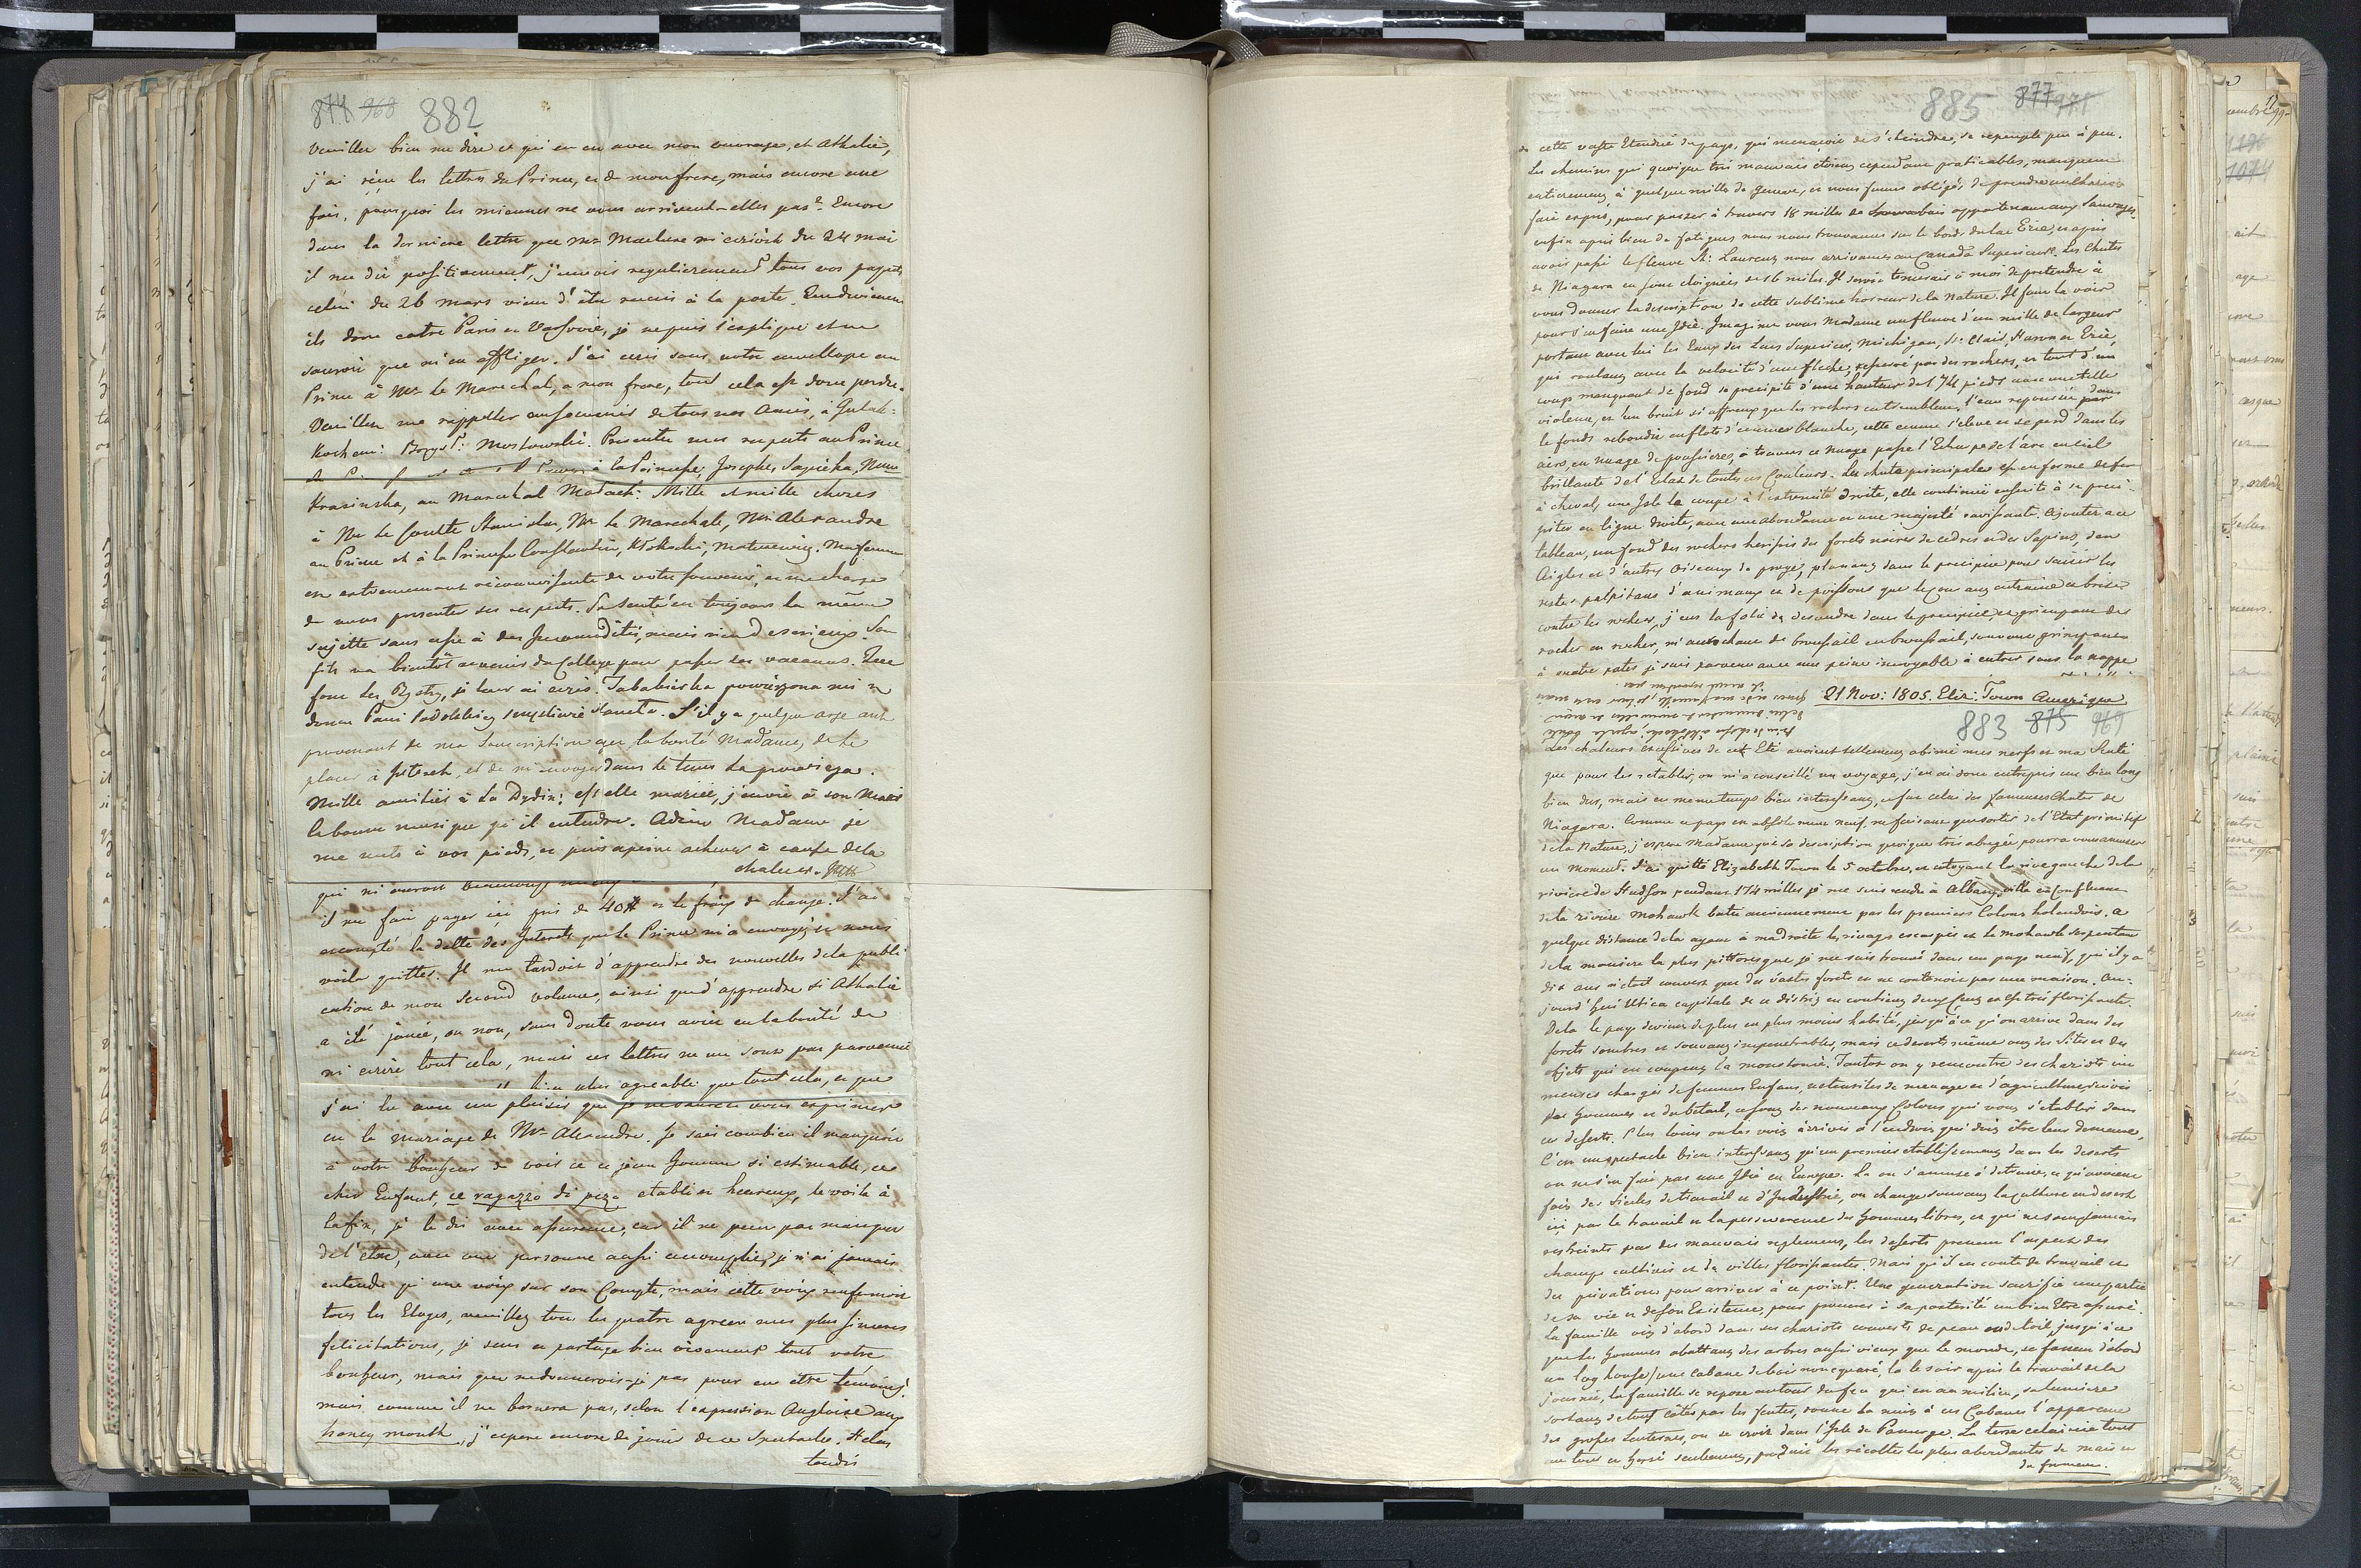 874 968 882
Veuillez bien me dire ce qui en en avec mon ouvrage, et Athalie,
j'ai reçu les lettres du Prince, et de mon frere, mais encore une
fois, pourquoi les miennes ne vous arrivent-elles pas? Encore
dans la derniere lettre que Mr Maclure m'écrivit du 24 mai
il me dit positivement, j'envois regulierement tous vos paquets
celui du 26 mars vient d'être remis à la poste.
ils donc entre Paris et Varsovie, je ne puis l'expliquer et ne
saurois que m'en affliger. J'ai ecris sous votre enveloppe au
Prince à Mr le Marechal, a mon frere, tout cela est donc perdu.
Veuillez me rappeller au souvenir de tous nos Amis, à Gutak:
Kochani: Mostowski. Presentez mes respects au Prince
à la Princesse, Joseph, Sapieha,
Krasinska, au Marechal Mille et mille choses
à Mr le Comte Stanislas, Mr le Marechal, Mr Alexandre
au Prince et à la Princesse Constantin, Matusewicz. Ma femme
est extremement reconnoissante de votre souvenir, et me charge
de vous presenter ses respects. Sa Santé est toujours la même
sujette sans cesse à des Incomodités, mais rien de serieux. Son
fils va bientôt revenir du College pour passer ses vacances. Que
font les Bystry, je leur ai ecris.
provenant de ma Souscription ayez la bonté Madame, de le
placer à et de m'envoyer dans le tems
Mille amitiés à La Dydin: est elle mariée, j'envie à son Mari
la bonne musique qu'il entendra. Adieu Madame je
me mets à vos pieds, et puis apeine achever à cause de la
chaleur.
qui m'auroit beaucoup
il me fait payer ici pris de 40# et le fraix de change. J'ai
accompté la dette des Interets que le Prince m'a envoyé, et nous
voila quittes. Il me tardoit d'apprendre des nouvelles de la publi
cation de mon Second volume, ainsi que d'apprendre si Athalie
a été jouée, ou non, sans doute vous aviez eu la bonté de
m'ecrire tout cela, mais ces lettres ne me sont pas parvenues
bien plus agreable que tout cela, et que
j'ai lu avec un plaisir que je ne saurois vous exprimer
est le mariage de Mr Alexandre. Je sais combien il manquoit
à votre bonheur de voir ce jeune homme si estimable, ce
cher Enfant, ce ragazzo di etabli et heureux, le voila à
la fin, je le dis avec assurance, car il ne peut pas manquer
de l'être, avec une personne aussi accomplie, je n'ai jamais
entendu qu'une voix sur son Compte, mais cette voix renfermoit
tous les Eloges, veuillez tous les quatre agreer mes plus sinceres
felicitations, je sens et partage bien vivement tout votre
bonheur, mais que ne donnerois-je pas pour en etre témoins!
mais comme il ne bornera pas, selon l'expression Angloise aux
honey month, j'espere encore de jouir de ce Spectacle. Helas
tandis
885 877 971
de cette vaste Etendue de pays, qui menacoit de s'eteindre, se repeuple peu à peu.
Les chemins qui quoique très mauvais étoient cependant praticables, manquent
entierement à quelque milles de Geneve, et nous fumes obligés, de prendre un chariot
fait exprès, pour passer à travers 18 milles de bois appartenant aux Sauvages,
enfin après bien de fatigues nous nous trouvames sur le bord du lac Erie, et après
avoir passé le fleuve St: Laurent nous arrivames au Canada Superieur. Les Chutes
de Niagara en sont eloignées de 16 miles. Il seroit temeraire à moi de pretendre à
vous donner la description de cette sublime horreur de la Nature. Il faut la voir
pour s'en faire une Idée. Imaginez vous Madame un fleuve d'un mille de largeur
portant avec lui les Eaux des Lacs Superieur, Michigan, St: Clair, Huron et Erie,
qui roulant avec la velocité d'une fleche, resserré par des rochers, et tout d'un
coup manquant de fond se precipite d'une hauteur de 174 pieds avec une telle
violence, et un bruit si affreux que les rochers en tremblent, l'eau repoussée dans
le fonds rebondie en flots d'ecume blanche, cette ecume s'eleve et se perd dans les
airs, en nuage de poussieres, à travers ce nuage passe l'Echarpe de l'arc en ciel
brillante de l'Eclat de toutes ses Couleurs. La chute principale est en forme de fer
à cheval, une Isle la coupe à l'extremité droite, elle continue ensuite à se preci-
piter en ligne droite, avec une abondance et une majesté ravissante. Ajoutez a ce
tableau, un fond des rochers herissés des forets noires de cedres et de Sapins, des
Aigles et d'autres Oiseaux de proye, planant dans le precipice pour saisir les
restes palpitans d'animaux et de poissons que l'eau entraine et brise
contre les rochers, j'eus la folie de descendre dans le precipice, en grimpant de
rocher en rocher, m'accrochant de broussail en broussail, souvent grimpant
à quatre pates je suis parvenu avec une peine incroyable à entrer sous la nappe
21 Nov: 1805. Eliz: Town Amerique
883 875 969
Les chaleurs excessives de cet Eté avoient tellement abimé mes nerfs et ma Santé
que pour les retablir, on m'a conseillé un voyage, j'en ai donc entrepris un bien long
bien dur, mais en meme temps bien interessant, ce fut celui des fameuses Chutes de
Niagara. Comme ce pays est absolument neuf, ne faisant que sortir de l'Etat primitif
de la Nature, j'espere Madame que sa description quoique très abregée pourra vous amuser
un moment. J'ai quitté Elizabeth Town le 5 octobre, et cotoyant la rive gauche de la
riviere de Hudson pendant 174 milles je me suis rendu à Albany, ville au Confluent
de la riviere Mohawk batie anciennement par les premiers Colons holandois. A
quelque distance de la ayant à ma droite les rivages escarpés et le Mohawk serpentant
de la maniere la plus pittoresque, je me suis trouvé dans un pays neuf, qui il y a
dix ans n'etoit couvert que de vastes forets et ne contenoit pas une maison. Au-
jourd'hui Utica capitale de ce district en contient deux Cent et est très florissante.
De la le pays devient de plus en plus moins habité, jusqu'à ce qu'on arrive dans des
forets sombres et souvent impenetrables, mais ce desert même ont des Sites et des
objets qui en coupent la monotonie. Tantot on y rencontre des chariots im
menses chargés de femmes Enfans, ustensiles de menage et d'agriculture, suivis
par hommes et du betail, ce sont des nouveaux Colons qui vont s'etablir dans
ces deserts. Plus loins on les voit arrivés à l'endroit qui doit être leur demeure,
C'est un spectacle bien interessant qu'un premier etablissement dans les deserts
on ne s'en fait pas une Idée en Europe. La on s'amuse à detruire, ce qu'avoient
fait des siecles de travail et d'Industrie, on change souvent la culture en desert
ici par le travail et la perseverence des hommes libres, et qui ne sont jamais
restreints par des mauvais reglemens, les deserts prenent l'aspect des
champs cultivés et de villes florissantes. Mais qu'il en coute de travail et
des privations pour arriver à ce point. Une generation sacrifie une partie
de sa vie et de son Existence, pour procurer à sa posterité un bien Etre assuré.
La famille vit d'abord dans ses chariots couverts de peau ou de toil, jusqu'à ce
que les hommes abattant des arbres aussi vieux que le monde, se fassent d'abord
un log house / une cabane de bois non equaré, là le soir après le travail de la
journée, la famille se repose autour du feu qui est au milieu, sa lumiere
sortant de tout côtés par les fentes, donne la nuit à ces Cabanes l'apparence
des grosses Lanternes, on se croit dans l'Isle de Panurge. La terre
produit les récoltes les plus abondantes de mais et
du froment.